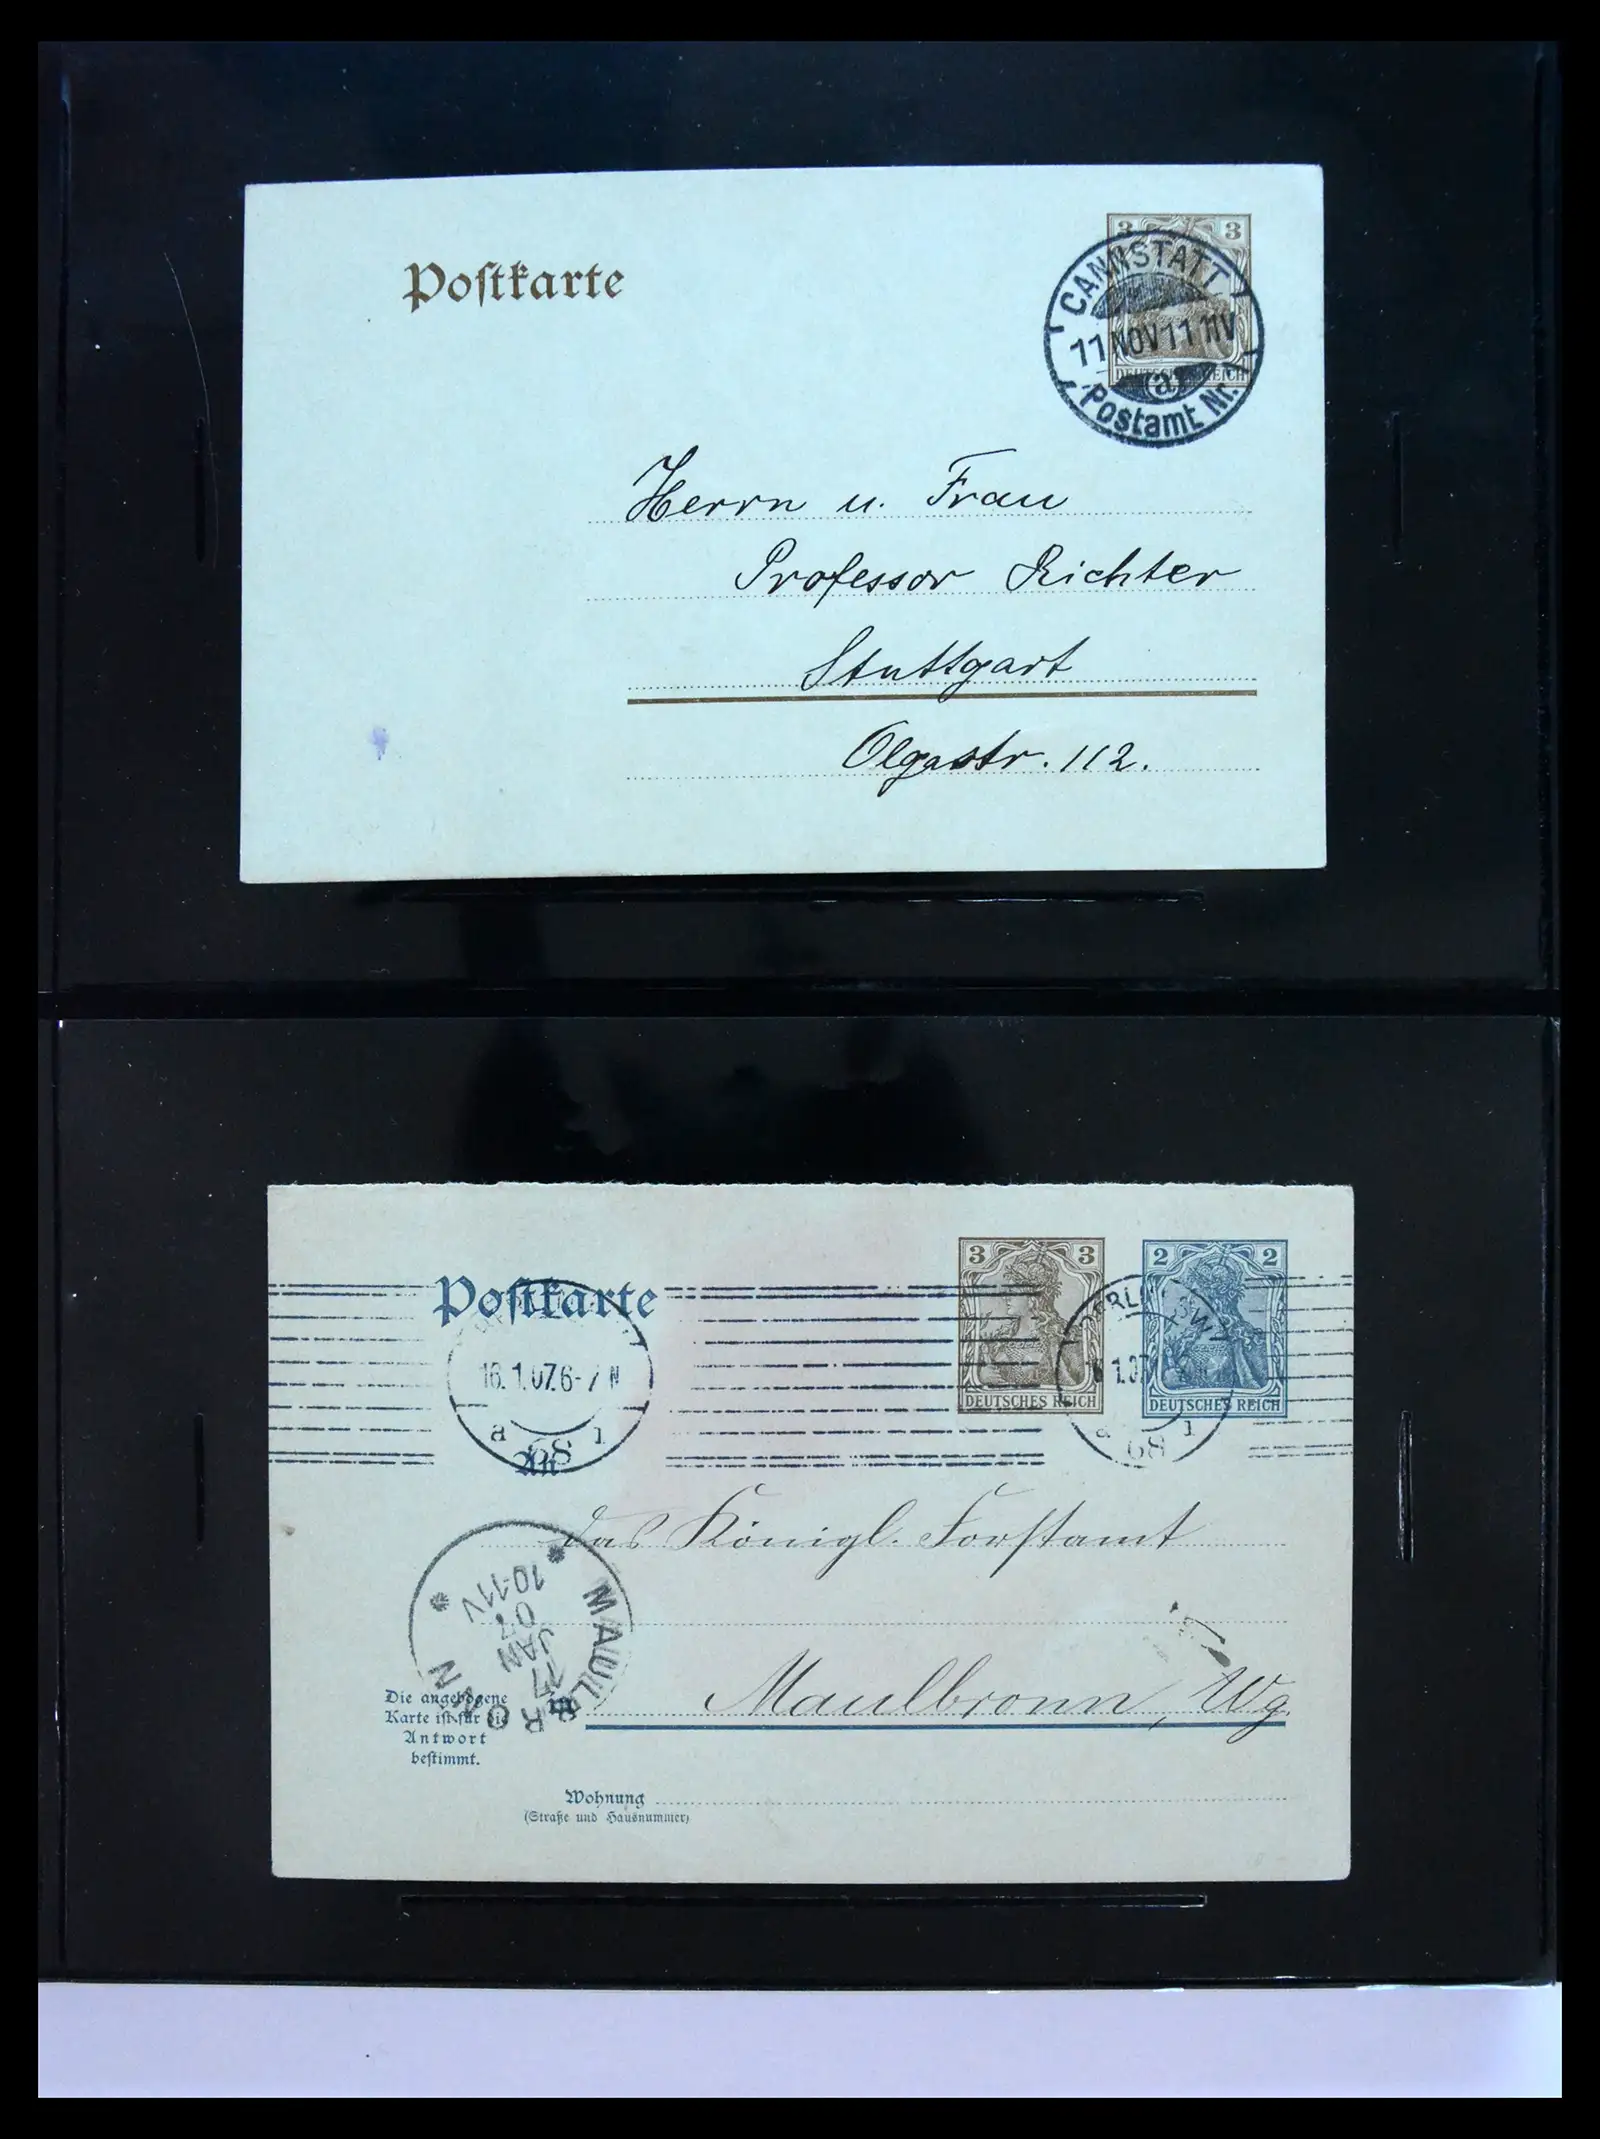 Postkarte
3 3
CANNSTATT
11 NOV 11 11V
DEUTSCHES REICH
(a)
Postamt Nr. 1
Herrn u. Frau
Professor Richter
Stuttgart
Olgastr. 112.
Postkarte
3 3
2 2
BERLIN SW
16.1.07.6-7N
1.07
DEUTSCHES REICH
DEUTSCHES REICH
a 68 1
a 68 1
An
das Königl. Forstamt
MAULBRONN
17 JAN 07
10-11V
in
Maulbronn, Wg.
Die angebogene
Karte ist für die
Antwort
bestimmt.
Wohnung
(Straße und Hausnummer)